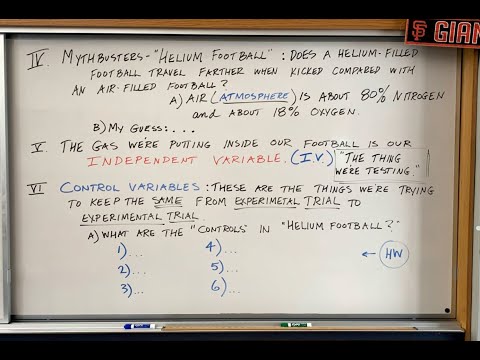 SF GIAN
IV. MYTHBUSTERS - "HELIUM FOOTBALL" : DOES A HELIUM-FILLED
FOOTBALL TRAVEL FARTHER WHEN KICKED COMPARED WITH
AN AIR-FILLED FOOTBALL?
A) AIR (ATMOSPHERE) IS ABOUT 80% NITROGEN
and ABOUT 18% OXYGEN.
B) MY GUESS: . . .
V. THE GAS WE'RE PUTTING INSIDE OUR FOOTBALL IS OUR
INDEPENDENT VARIABLE. (I.V.) "THE THING
WE'RE TESTING."
VI CONTROL VARIABLES : THESE ARE THE THINGS WE'RE TRYING
TO KEEP THE SAME FROM EXPERIMETAL TRIAL TO
EXPERIMENTAL TRIAL.
A) WHAT ARE THE "CONTROLS" IN "HELIUM FOOTBALL?"
1) . . . 4) . . .
2) . . . 5) . . . ← HW
3) . . . 6) . . .